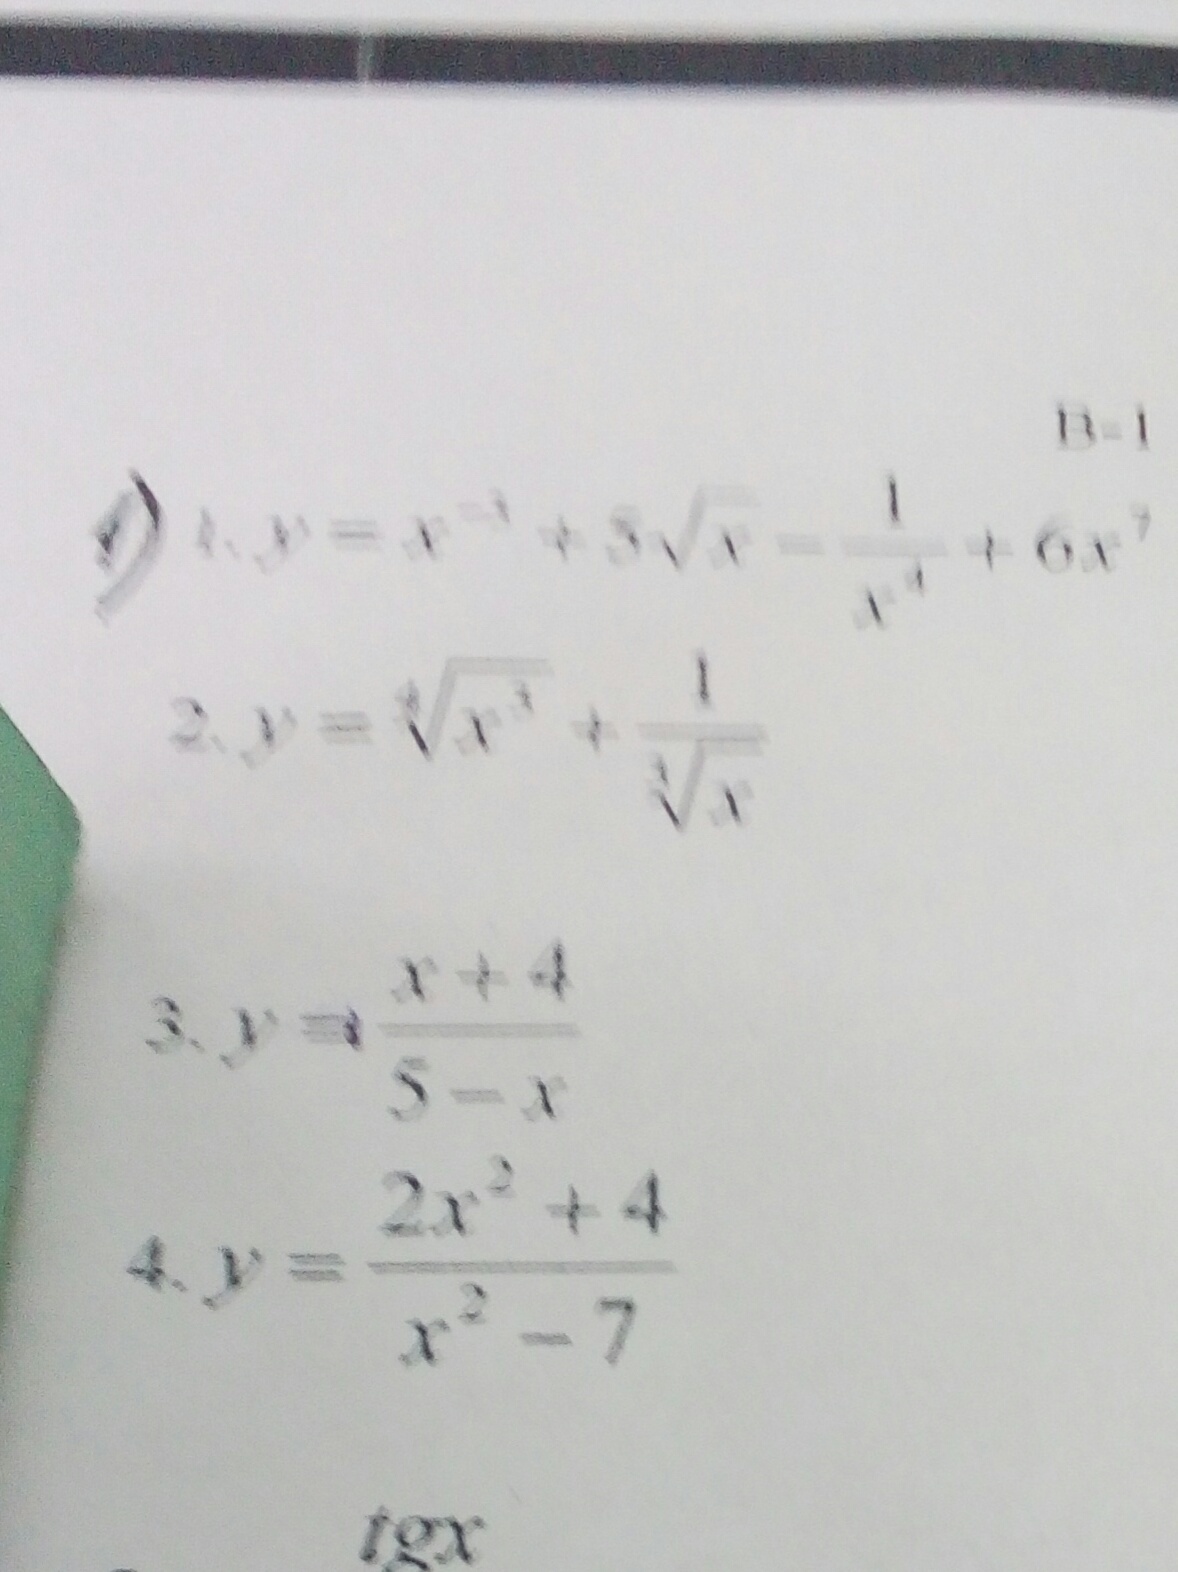 B-1
1) 1. y = x⁻³ + 5√x − 1/x⁴ + 6x⁷
2. y = ∜x³ + 1/∛x
3. y = (x + 4)/(5 − x)
4. y = (2x² + 4)/(x² − 7)
tgx